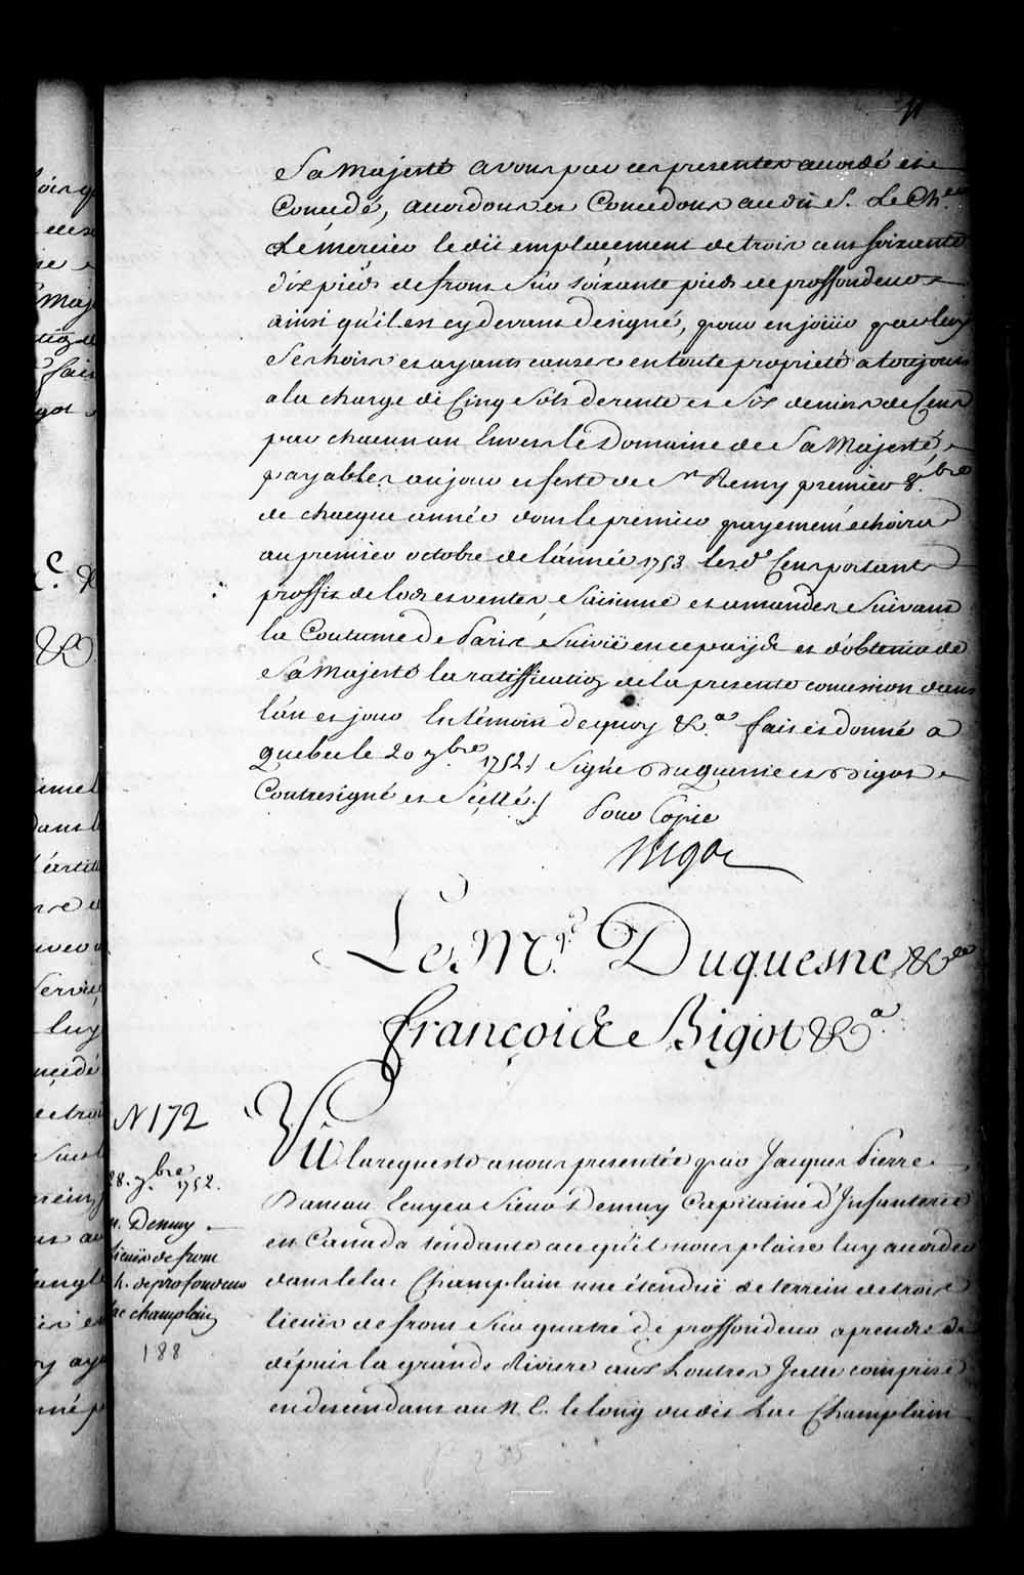 Sa Majesté avons par ces presentes accordé et
Concedé, accordons et Concedons audit S. Le Ch.er
Lemercier ledit emplacement de trois cens soixante
dix pieds de front sur soixante pieds de proffondeur
ainsi qu'il est cy devant designé, pour en joüir par luy
Ses hoirs et ayants cause en toute proprieté a toujours
a la charge de Cinq Sols de rente et Six deniers de Cens
par chacun an Envers le Domaine de Sa Majesté,
payables au jour et feste de St Remy premier 8.bre
de chacque année dont le premier payement échoira
au premier octobre de l'année 1753 lesd. Cens portant
proffits de lods et ventes Saisinne et amandes Suivant
la Coutume de Paris Suivie en ce pays & et d'obtenir de
Sa Majesté la ratiffication de la presente concession dans
l'an et jour En témoin de quoy &c.a fait et donné a
Quebec le 20 7.bre 1752 / Signé Duquesne et Bigot
Contresigné et Scellé /
Pour Copie
Bigot
Le M.qs Duquesne &c.a
François Bigot &c.a
N 172
28. 7.bre 1752.
Demuy
lieuës de front
de profondeur
champlain
188
Vû la requeste a nous presentée par Jacques Pierre
Daneau Ecuyer Sieur Demuy Capitaine d'Infanterie
en Canada tendante a ce qu'il nous plaise luy accorder
dans le lac Champlain une étenduë de terrein de trois
lieuës de front Sur quatre de proffondeur a prendre
dépuis la grande Riviere aux Loutres Jcelle comprise
en descendant au N. E. le long dudit Lac Champlain